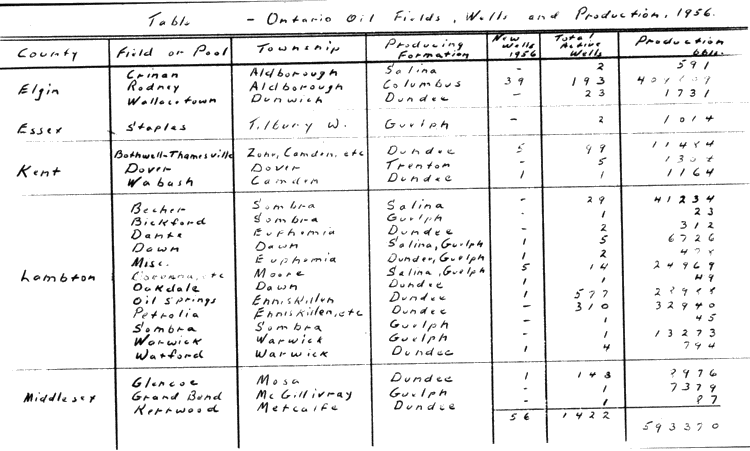 Table - Ontario Oil Fields, Wells and Production, 1956.
County Field or Pool Township Producing Formation New Wells 1956 Total Active Wells Production bbls.
Elgin
Crinan Aldborough Salina - 2 591
Rodney Aldborough Columbus 39 193
Wallacetown Dunwich Dundee - 23 1731
Essex Staples Tilbury W. Guelph - 2 1014
Kent
Bothwell-Thamesville Zone, Camden, etc Dundee 5 99
Dover Dover Trenton - 5
Wabash Camden Dundee 1 1 1164
Lambton
Becher Sombra Salina - 29 41234
Bickford Sombra Guelph - 1 23
Dante Euphemia Dundee - 2 312
Dawn Dawn Salina, Guelph 1 5 6726
Misc. Euphemia Dundee, Guelph 1 2
etc Moore Salina, Guelph 5 14 24969
Oakdale Dawn Dundee 1 1 49
Oil Springs Enniskillen Dundee 1 577
Petrolia Enniskillen, etc Dundee - 310 32940
Sombra Sombra Guelph - 1 45
Warwick Warwick Guelph - 1 13273
Watford Warwick Dundee 1 4 794
Middlesex
Glencoe Mosa Dundee 1 143
Grand Bend McGillivray Guelph - 1 7379
Kerrwood Metcalfe Dundee - 1
56 1422
593370